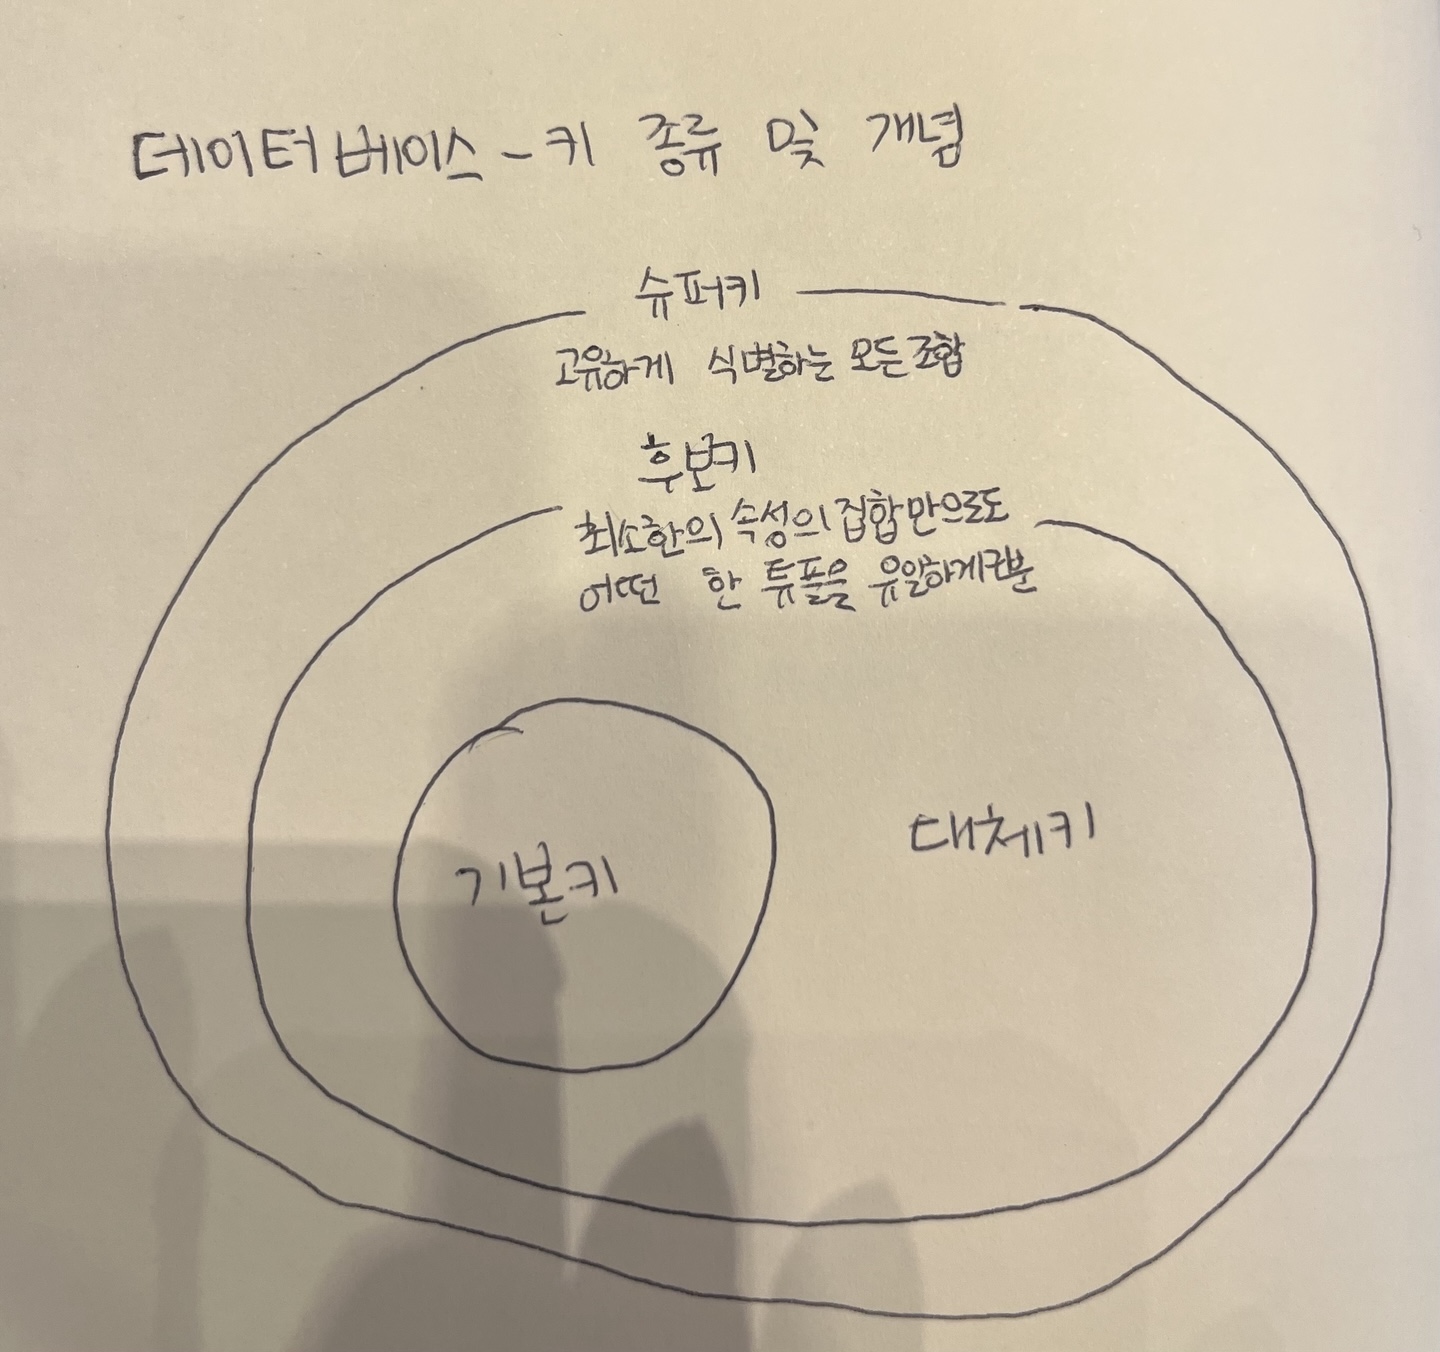 데이터베이스 - 키 종류 및 개념
슈퍼키
고유하게 식별하는 모든 조합
후보키
최소한의 속성의 집합만으로도
어떤 한 튜플을 유일하게 구분
대체키
기본키